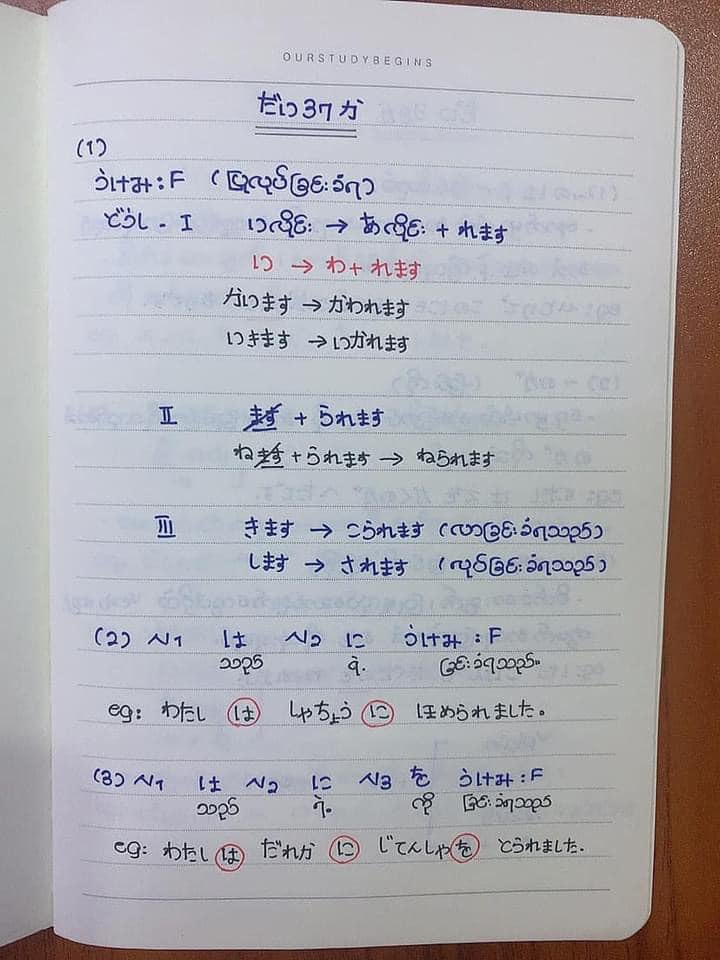 OURSTUDYBEGINS
だい37か
(1)
うけみ : F (ပြုလုပ်ခြင်းခံရ)
どうし - I いလိုင်း → あလိုင်း + れます
い → わ + れます
かいます → かわれます
いきます → いかれます
II ます + られます
ねます + られます → ねられます
III きます → こられます (လာခြင်းခံရသည်)
します → されます (လုပ်ခြင်းခံရသည်)
(2) N1 は N2 に うけみ : F
သည် ရဲ့ ခြင်းခံရသည်။
eg: わたし は しゃちょう に ほめられました。
(3) N1 は N2 に N3 を うけみ : F
သည် ရဲ့ ကို ခြင်းခံရသည်
eg: わたし は だれか に じてんしゃ を とられました.